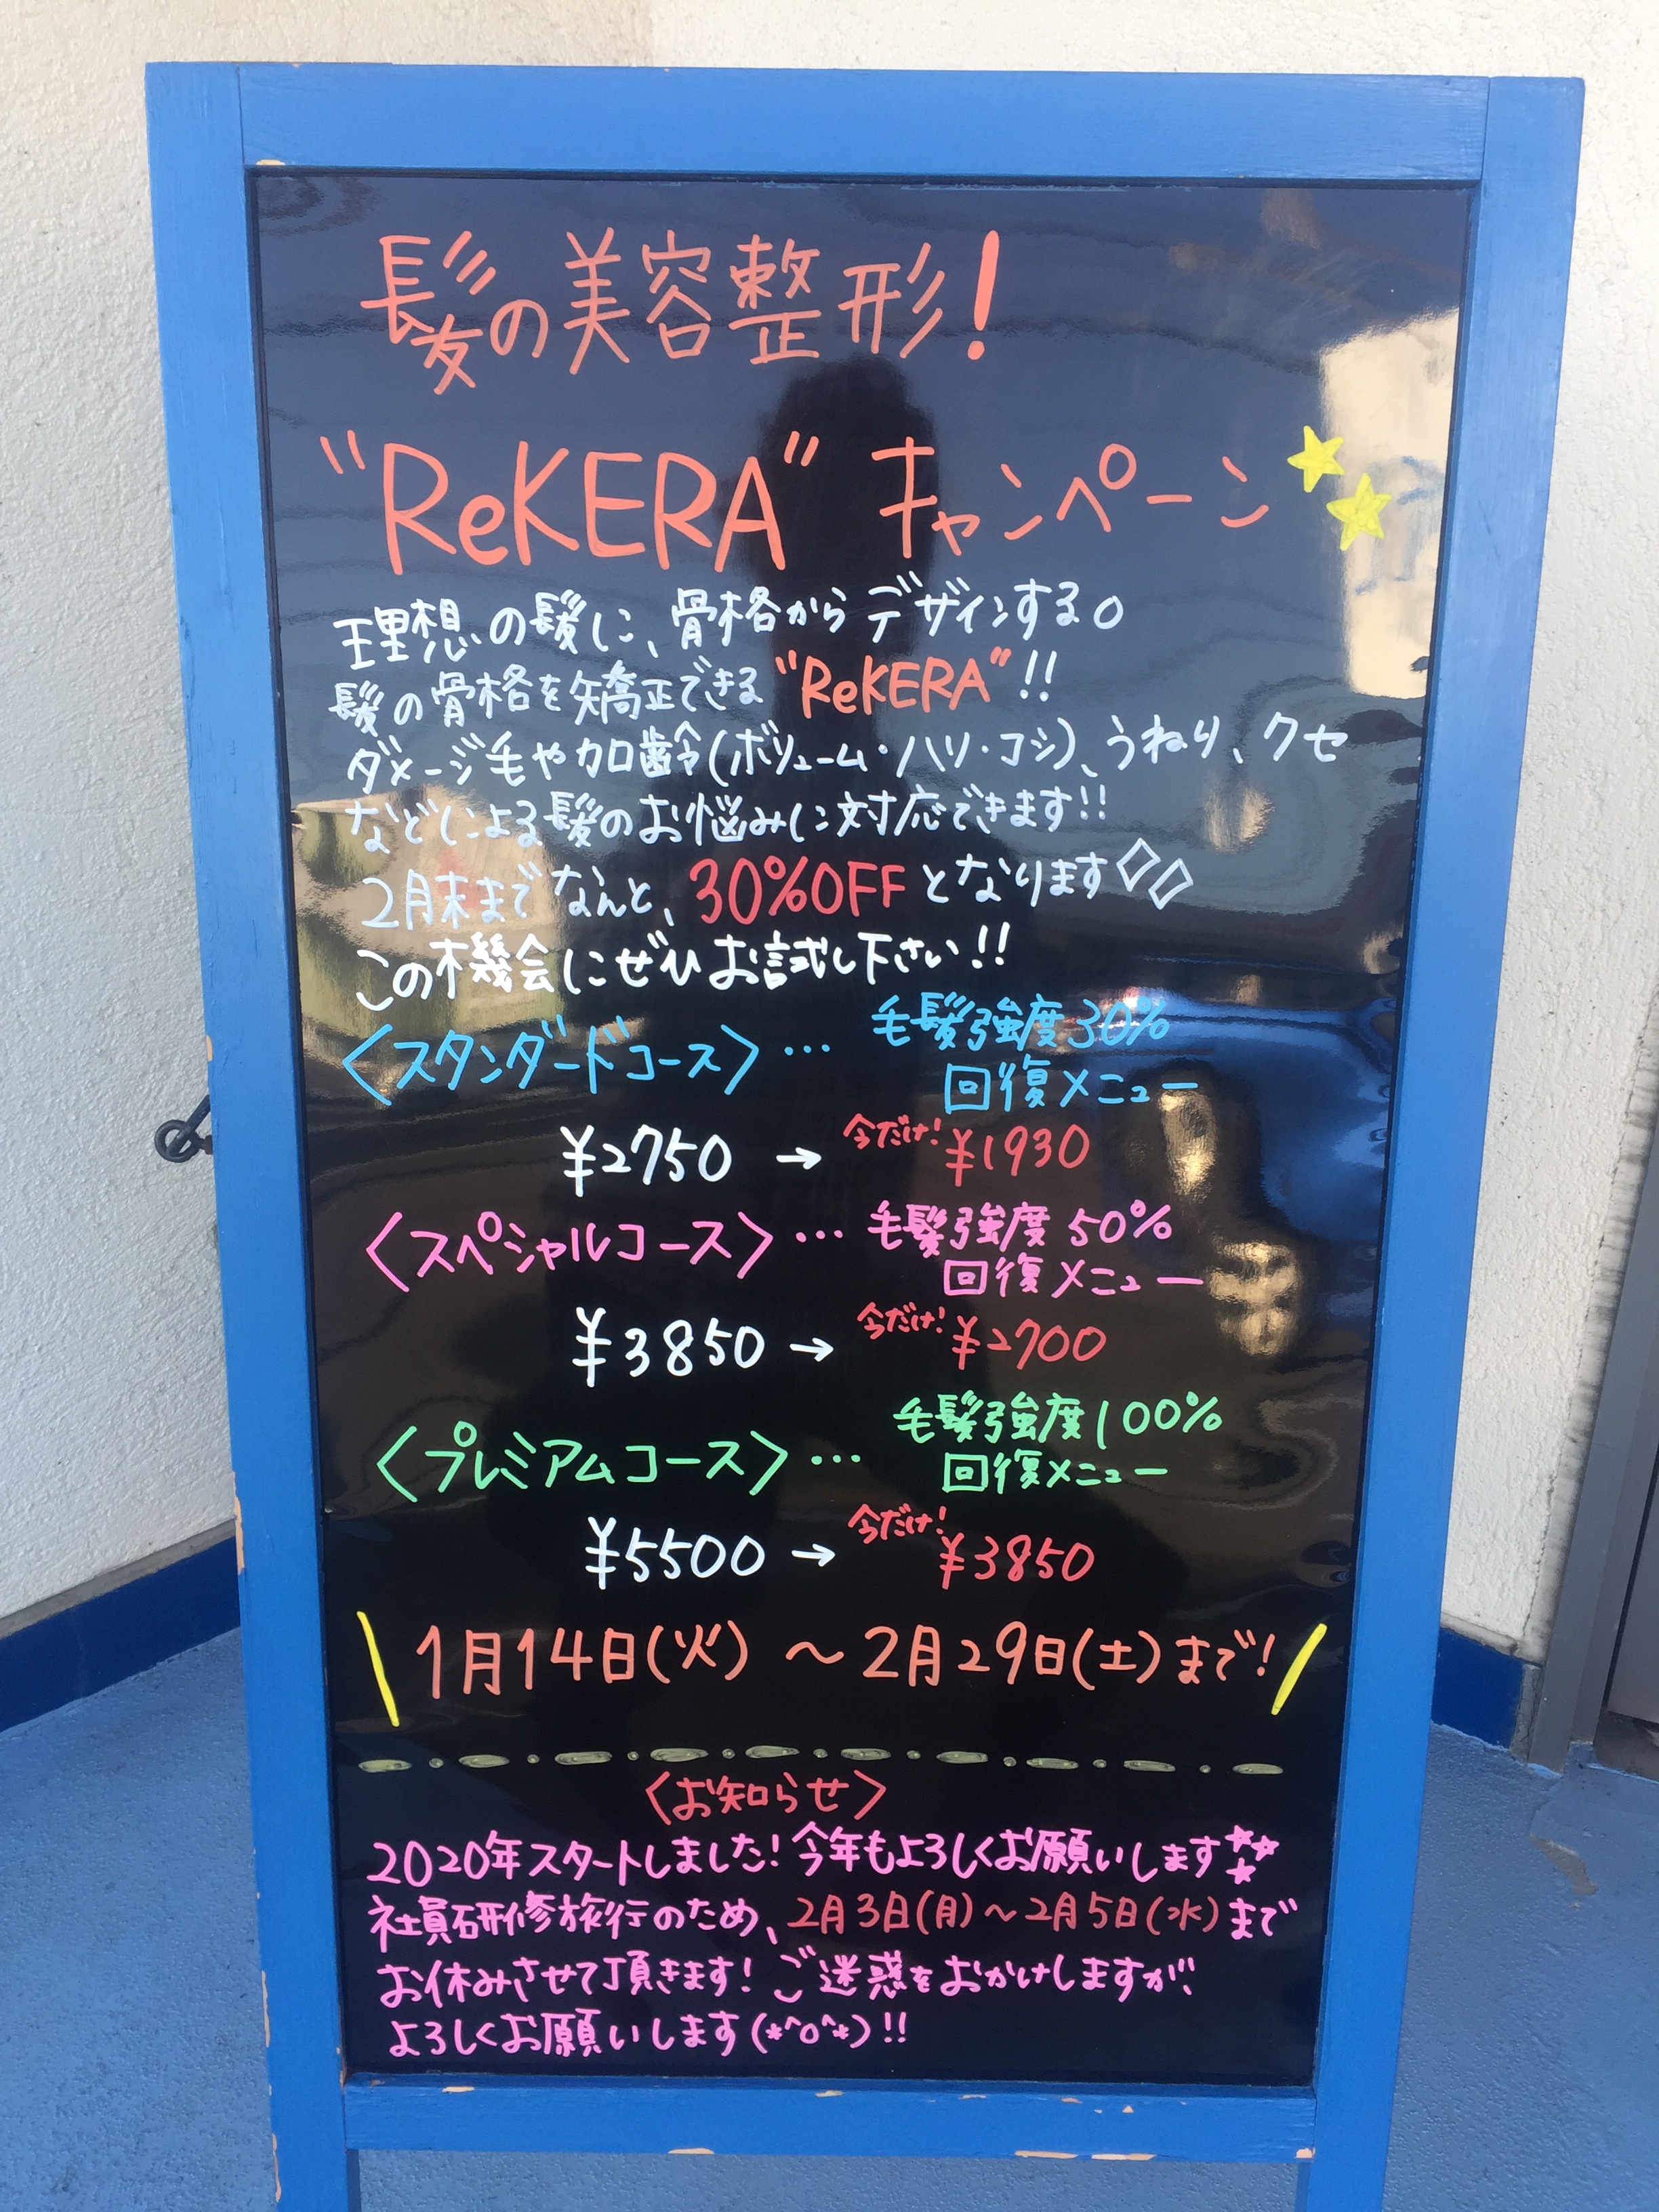 髪の美容整形！
"ReKERA" キャンペーン
理想の髪に、骨格からデザインする。
髪の骨格を矯正できる"ReKERA"!!
ダメージ毛や加齢(ボリューム・ハリ・コシ)、うねり、クセ
などによる髪のお悩みに対応できます!!
2月末までなんと、30%OFFとなります◇◇
この機会にぜひお試し下さい!!
〈スタンダードコース〉… 毛髪強度30%
回復メニュー
¥2750 → 今だけ! ¥1930
〈スペシャルコース〉… 毛髪強度50%
回復メニュー
¥3850 → 今だけ! ¥2700
〈プレミアムコース〉… 毛髪強度100%
回復メニュー
¥5500 → 今だけ! ¥3850
\ 1月14日(火) ～ 2月29日(土)まで! /
〈お知らせ〉
2020年スタートしました! 今年もよろしくお願いします
社員研修旅行のため、2月3日(月)～2月5日(水)まで
お休みさせて頂きます! ご迷惑をおかけしますが、
よろしくお願いします(*^o^*)!!